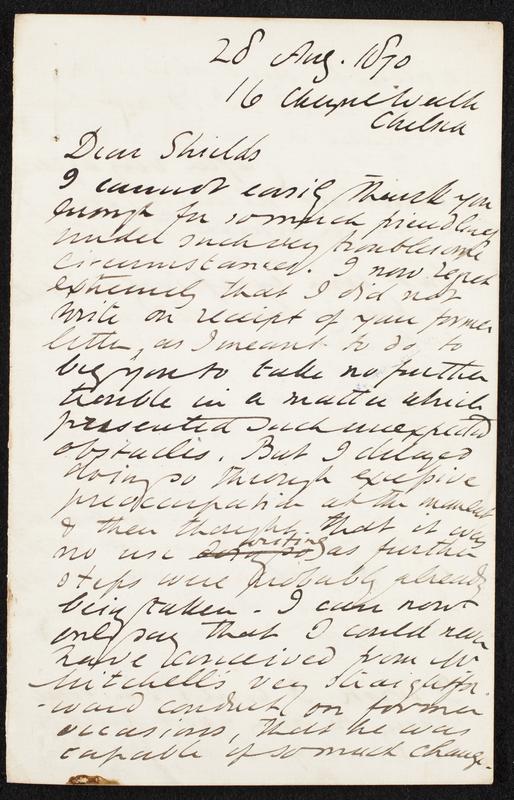 28 Aug. 1870
16 Cheyne Walk
Chelsea
Dear Shields
I cannot easily thank you
enough for so much friendliness
under such very troublesome
circumstances. I now regret
extremely that I did not
write on receipt of your former
letter, as I meant to do, to
beg you to take no further
trouble in a matter which
presented such unexpected
obstacles. But I delayed
doing so through excessive
preoccupation at the moment
& then thought that it was
no use writing as further
steps were probably already
being taken – I can now
only say that I could never
have conceived from Mr
Mitchell's very straightfor
-ward conduct on former
occasions, that he was
capable of so much change-